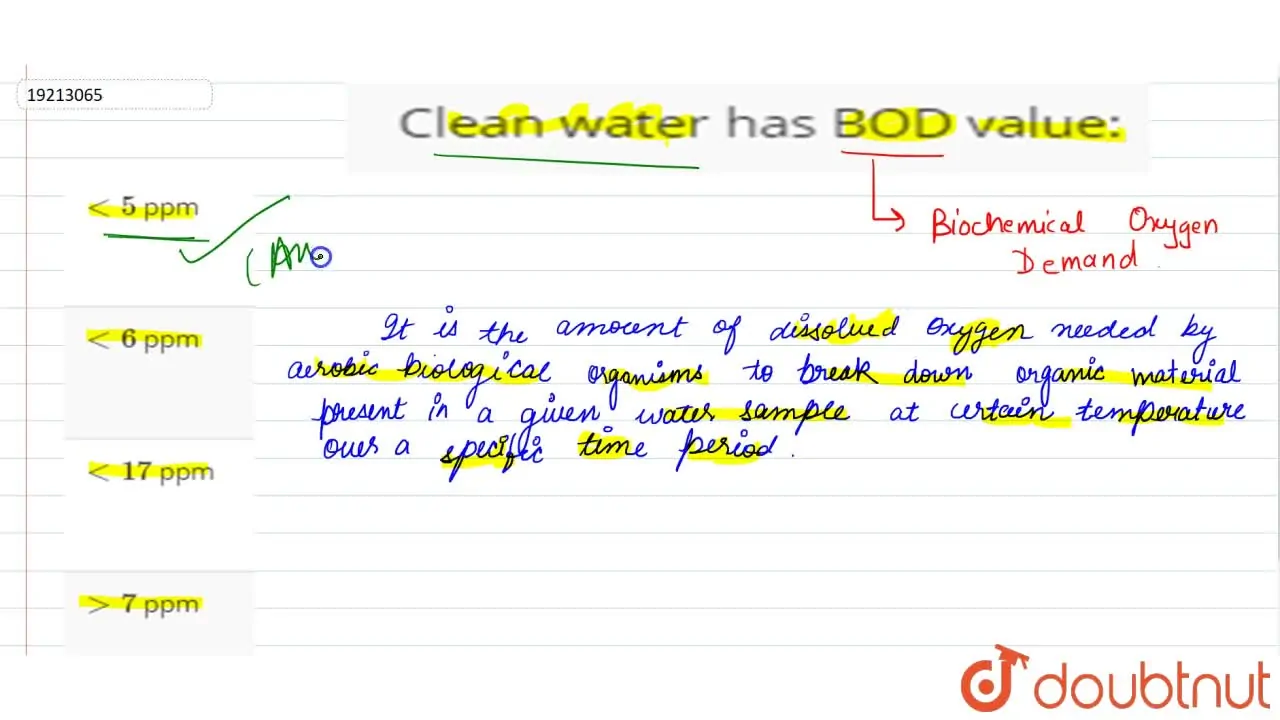 19213065
Clean water has BOD value:
< 5 ppm
(An
Biochemical Oxygen
Demand
< 6 ppm
It is the amount of dissolved oxygen needed by
aerobic biological organisms to break down organic material
present in a given water sample at certain temperature
over a specific time period.
< 17 ppm
> 7 ppm
doubtnut